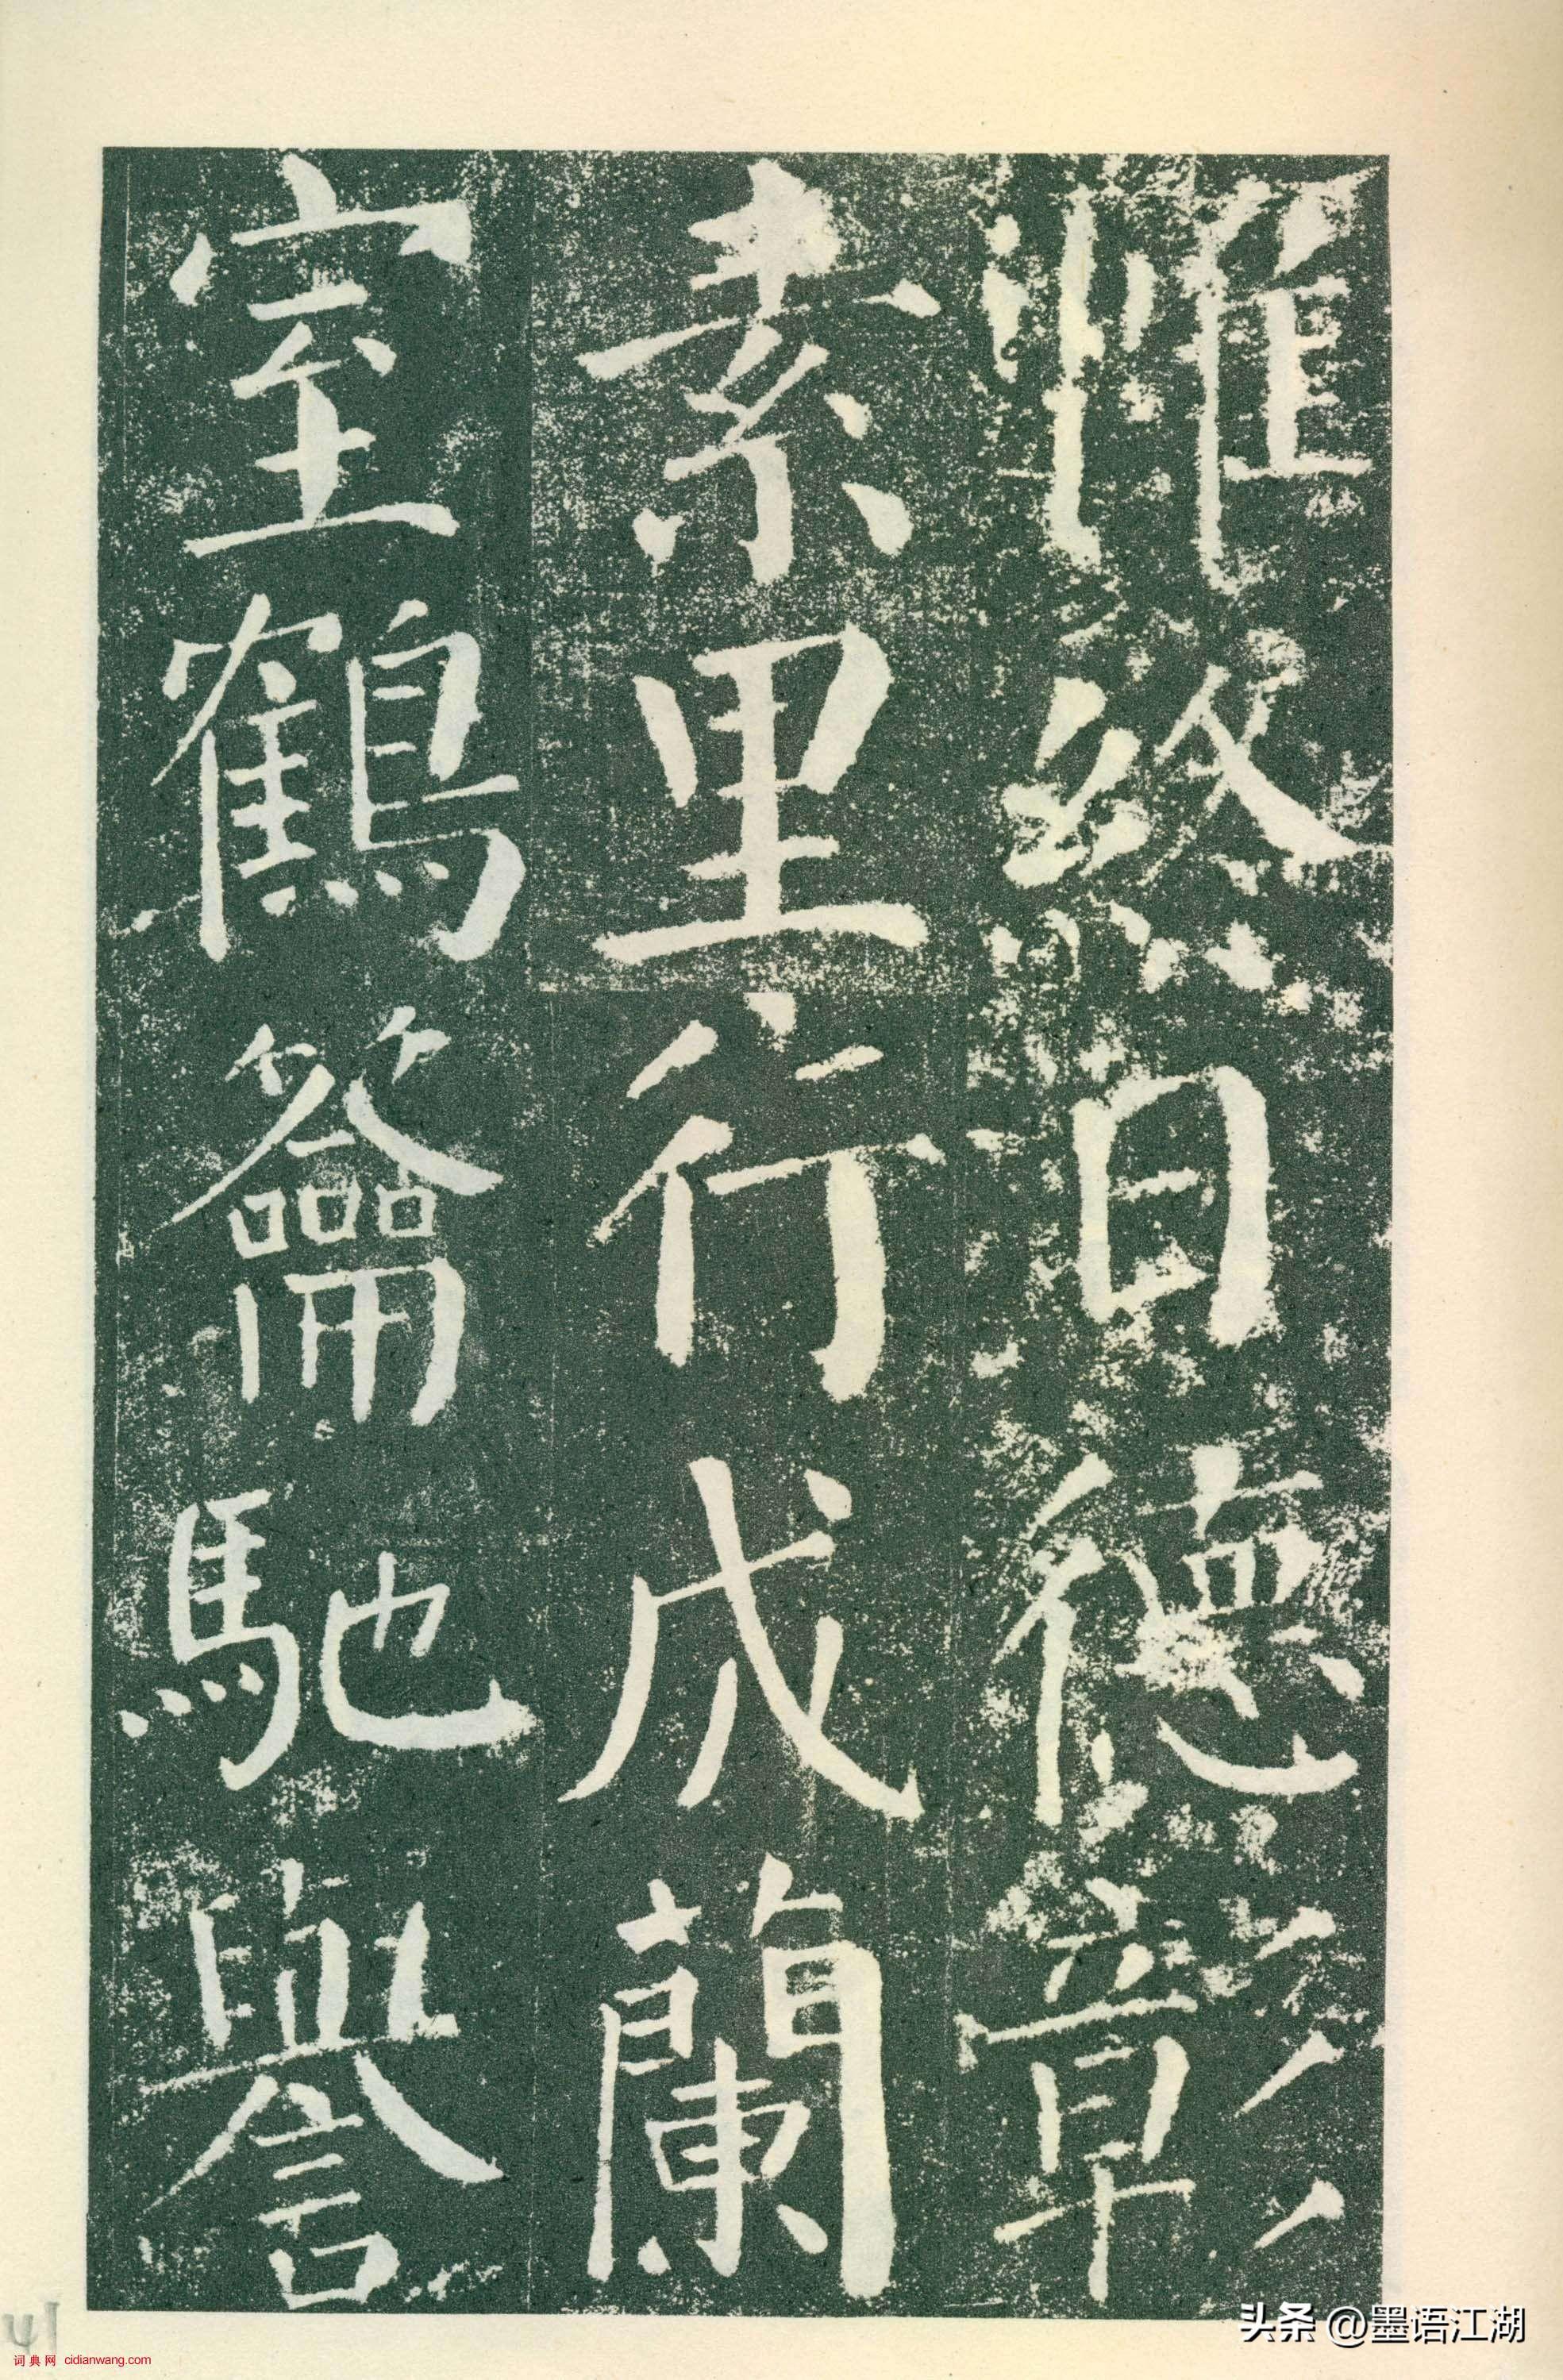 帷終日德彰
素里行成蘭
室鶴籥馳譽
41
词典网 cidianwang.com
头条 @墨语江湖